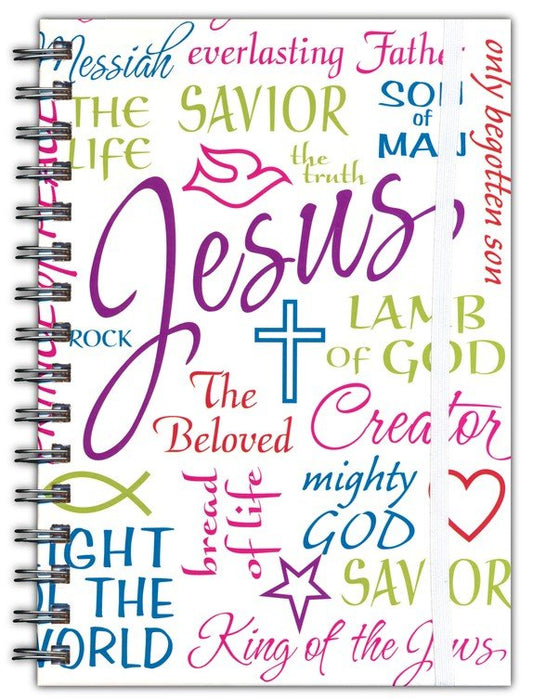 Messiah
everlasting Father
only begotten son
THE
LIFE
SAVIOR
SON
of
MAN
the
truth
Jesus
ROCK
LAMB
OF GOD
The
Beloved
Creator
bread
of life
mighty
GOD
LIGHT
OF THE
WORLD
SAVIOR
King of the Jews